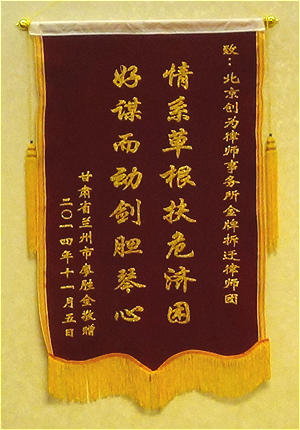 致：北京创为律师事务所金牌拆迁律师团
情系草根扶危济困
好谋而动剑胆琴心
甘肃省兰州市廖胜全敬赠
二〇一四年十一月五日